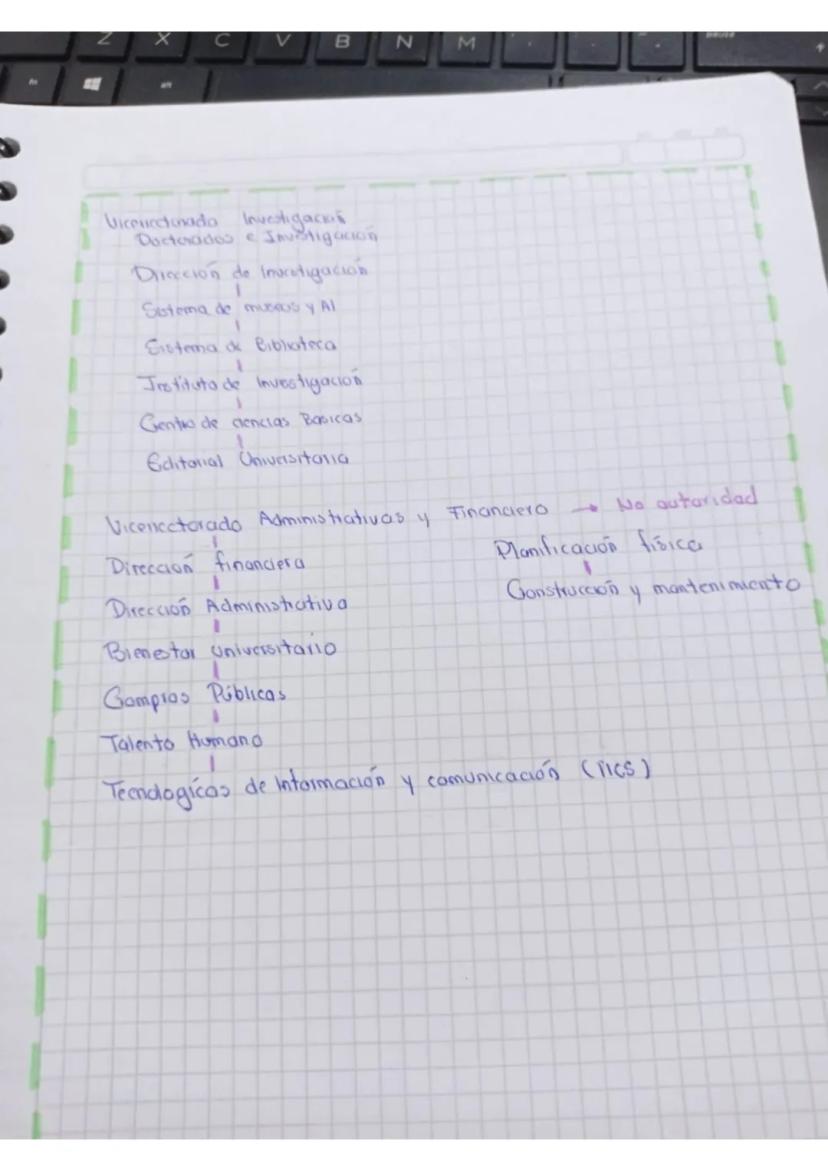 Z X C V B N M
fn alt
Vicerrectorado Investigación
Doctorados e Investigación
Dirección de Investigación
Sistema de museos y AI
Sistema de Biblioteca
Instituto de Investigación
Centro de ciencias Basicas
Editorial Universitaria
Vicerrectorado Administrativas y Financiero → No autoridad
Dirección financiera
Planificación física
Dirección Administrativa
Construcción y mantenimiento
Bienestar universitario
Compras Públicas
Talento Humano
Tecnologícas de Información y comunicación (TICS)